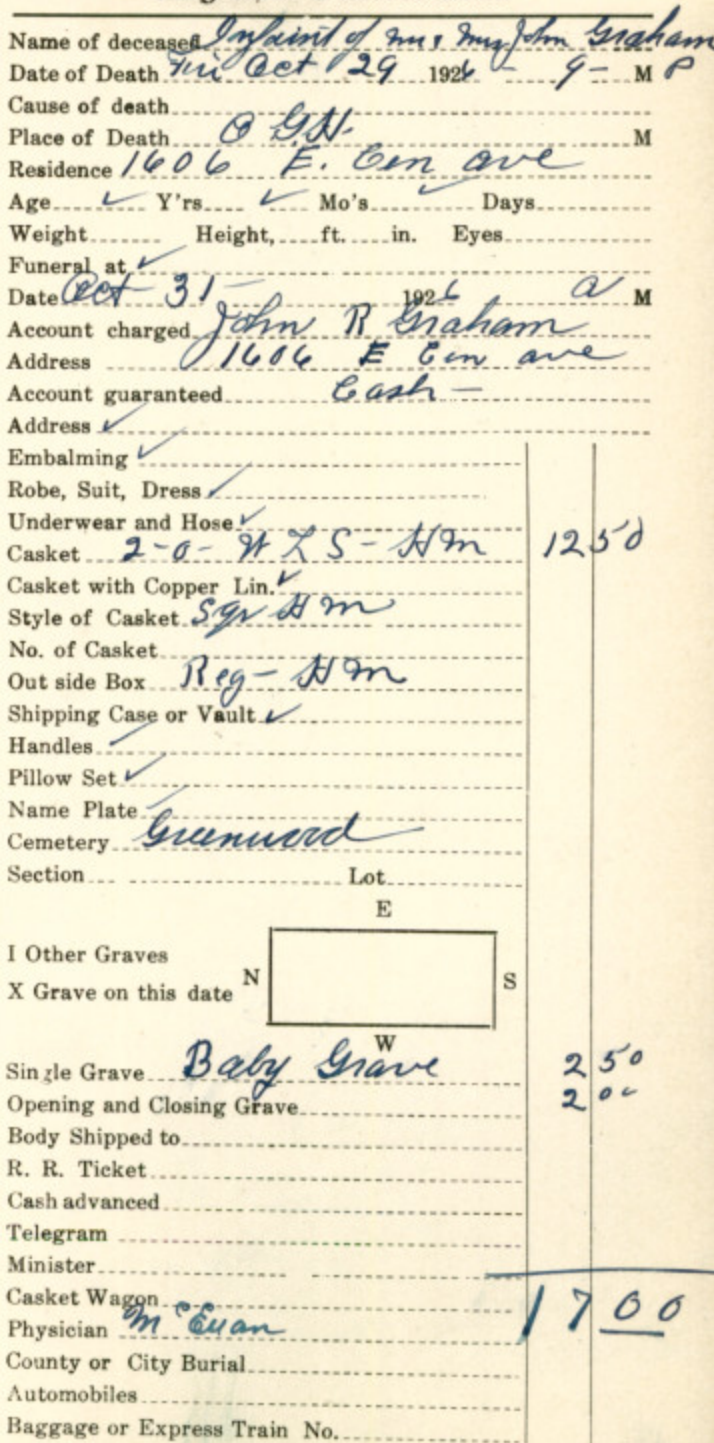 Name of deceased Infaint of Mr & Mrs John Graham
Date of Death Fri Oct 29 1926 - 9- M P
Cause of death
Place of Death O G H. M
Residence 1606 E. Cen ave
Age Y'rs Mo's Days
Weight Height, ft. in. Eyes
Funeral at
Date Oct 31- 1926 a M
Account charged John R Graham
Address 1606 E Cen ave
Account guaranteed Cash -
Address
Embalming
Robe, Suit, Dress
Underwear and Hose
Casket 2-0- W L S - HM 12 50
Casket with Copper Lin.
Style of Casket Sqr HM
No. of Casket
Out side Box Reg- HM
Shipping Case or Vault
Handles
Pillow Set
Name Plate
Cemetery Greenwood
Section Lot
E
I Other Graves
N S
X Grave on this date
W
Single Grave Baby Grave 2 50
Opening and Closing Grave 2 00
Body Shipped to
R. R. Ticket
Cash advanced
Telegram
Minister
Casket Wagon 17 00
Physician McEuan
County or City Burial
Automobiles
Baggage or Express Train No.